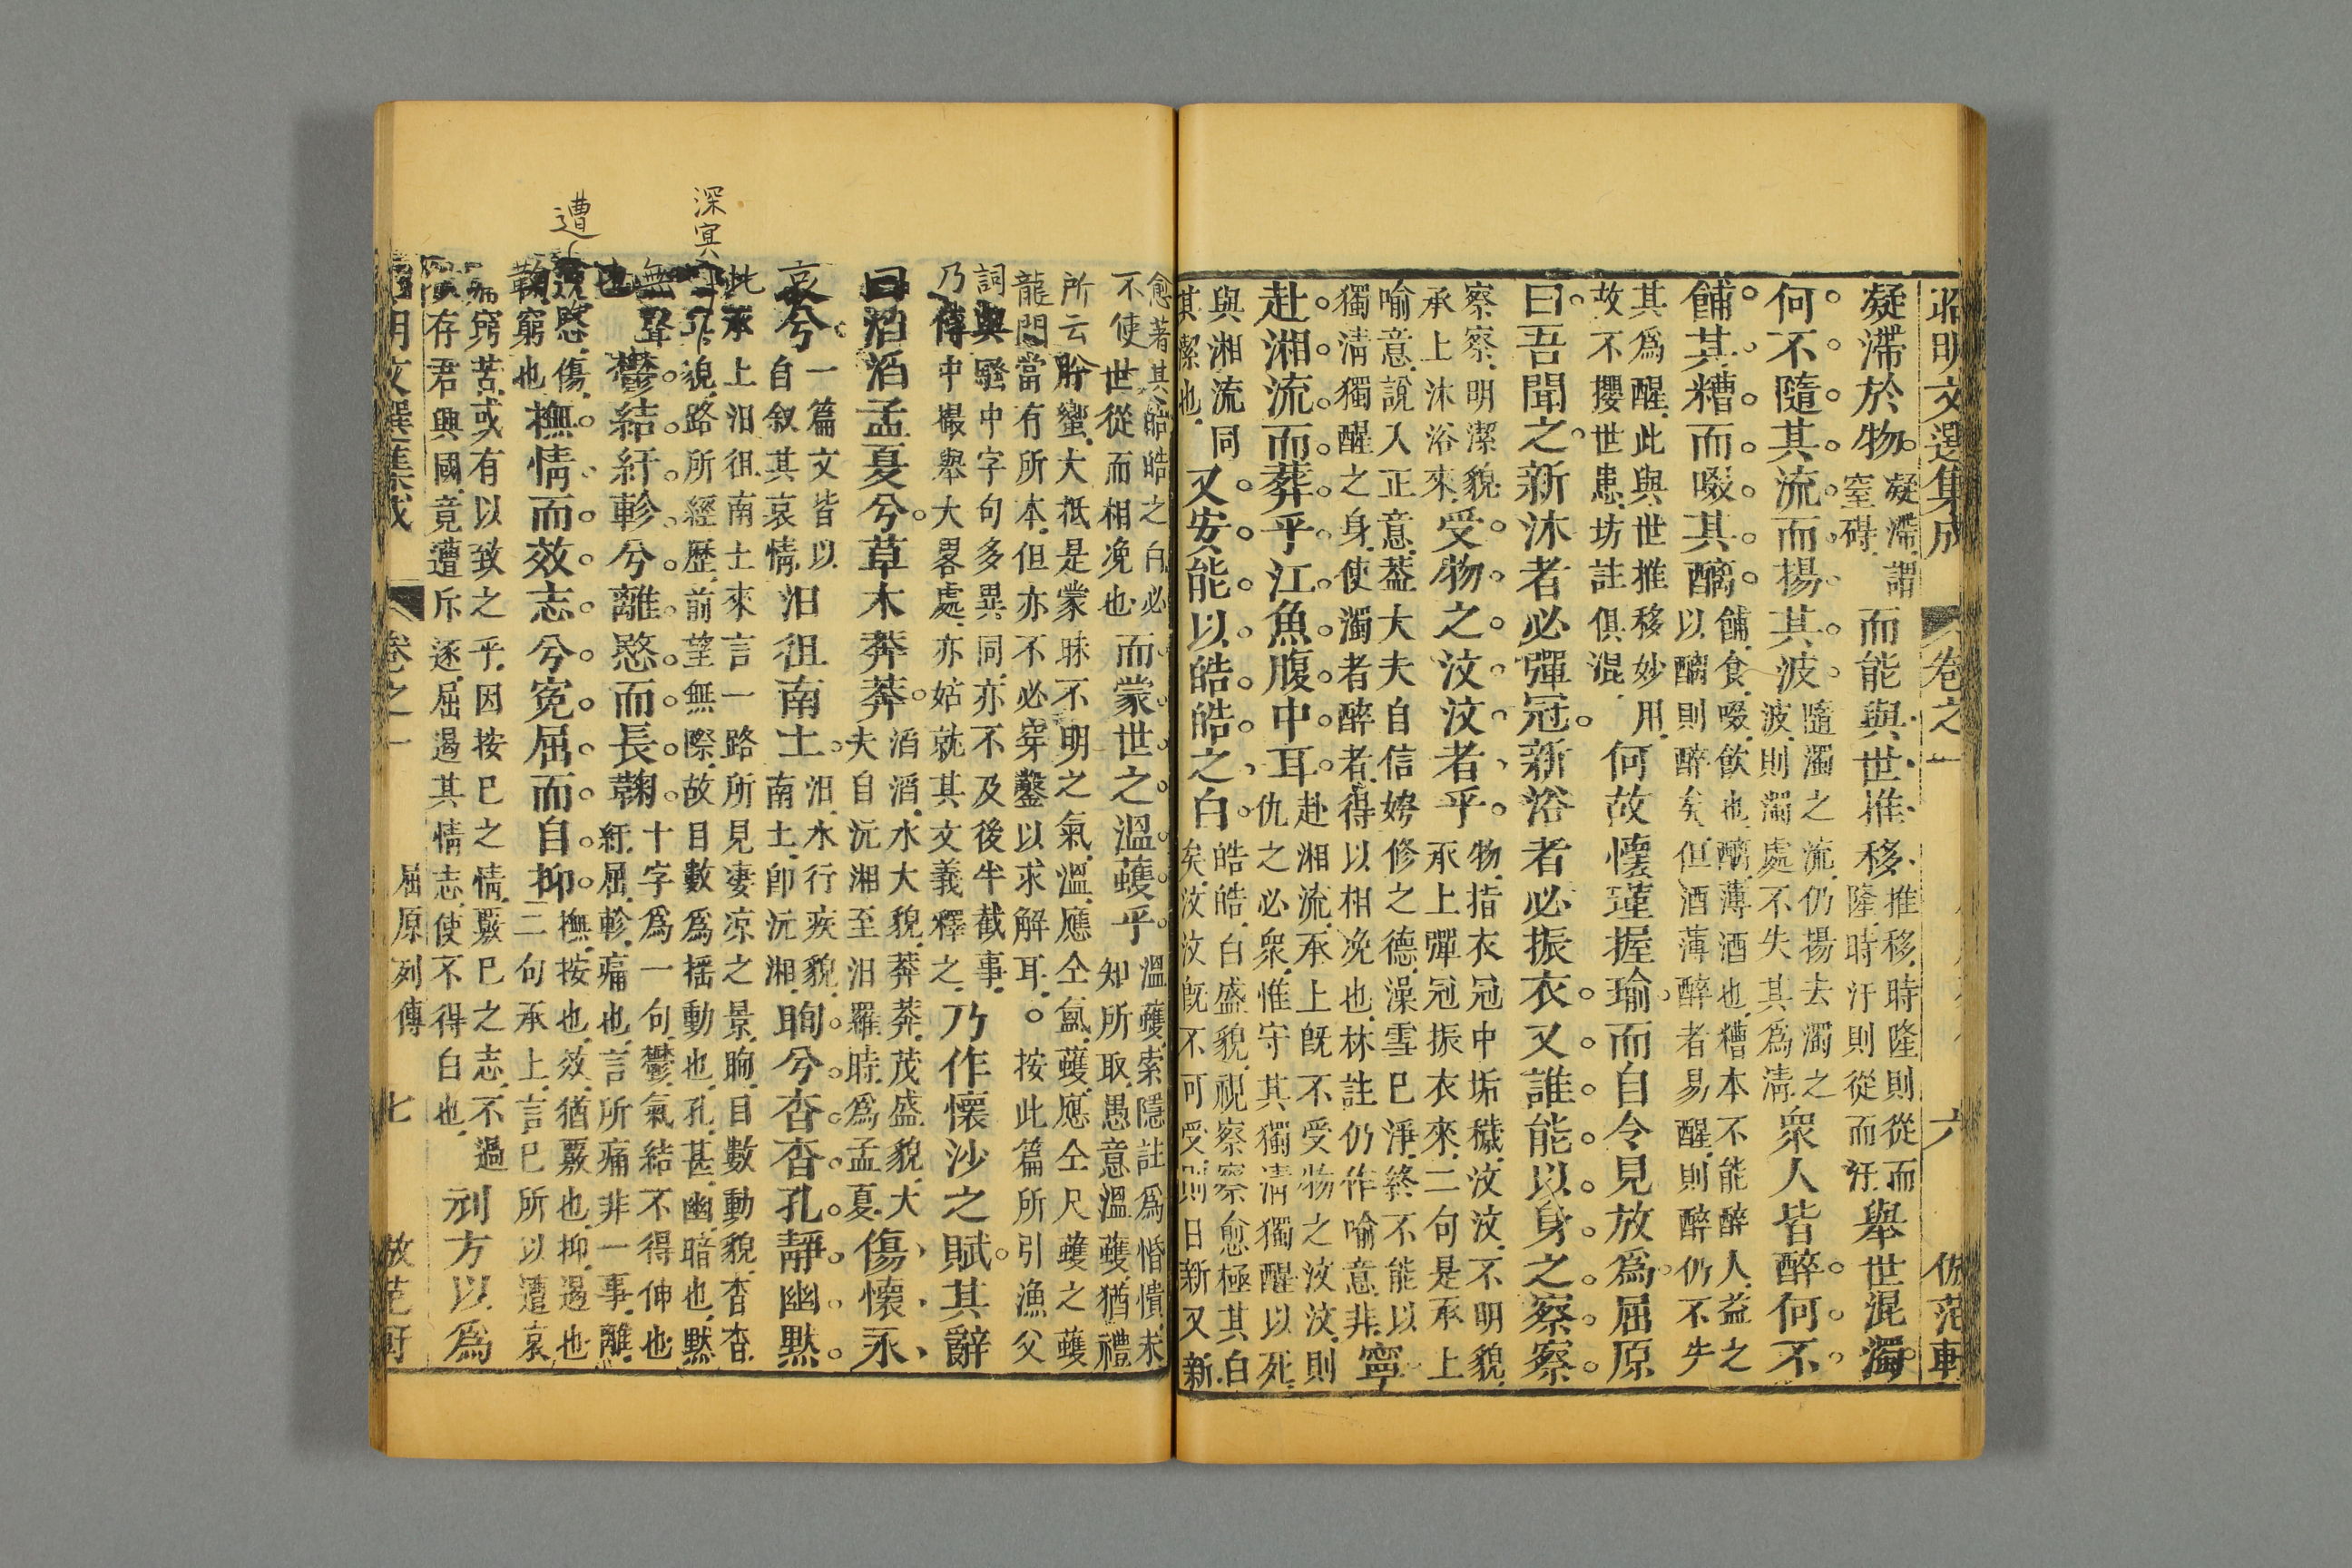 昭明文選集成 卷之一 六 倣范軒
凝滯於物凝滯謂
窒碍而能與世推移推移時隆則從而
隆時汙則從而汙舉世混濁
何不隨其流而揚其波隨濁之流仍揚去濁之
波則濁處不失其為清衆人皆醉何不
餔其糟而啜其醨餔食啜飲也醨薄酒也糟本不能醉人益之
以醨則醉矣但酒薄醉者易醒則醉仍不失
其為醒此與世推移妙用
故不攖世患坊註俱混何故懷瑾握瑜而自令見放為屈原
曰吾聞之新沐者必彈冠新浴者必振衣又誰能以身之察察
察察明潔貌
承上沐浴來受物之汶汶者乎物指衣冠中垢穢汶汶不明貌
承上彈冠振衣來二句是承上
喻意說入正意葢大夫自信姱修之德澡雪已淨終不能以
獨清獨醒之身使濁者醉者得以相凂也林註仍作喻意非寧
赴湘流而葬乎江魚腹中耳赴湘流承上旣不受物之汶汶則
仇之必衆惟守其獨清獨醒以死
與湘流同
其潔也又安能以皓皓之白皓皓白盛貌視察察愈極其白
矣汶汶旣不可受則日新又新
愈著其皓皓之白必
不使世從而相凂也而蒙世之溫蠖乎溫蠖索隱註為惛憒未
知所取愚意溫蠖猶禮
所云肸蠁大抵是蒙昧不明之氣溫應仝氳蠖應仝尺蠖之蠖
龍門當有所本但亦不必穿鑿以求解耳○按此篇所引漁父
詞與騷中字句多異同亦不及後半截事
乃傳中撮舉大畧處亦姑就其文義釋之乃作懷沙之賦其辭
曰滔滔孟夏兮草木莽莽滔滔水大貌莽莽茂盛貌大
夫自沅湘至汨羅時為孟夏傷懷永
哀兮一篇文皆以
自叙其哀情汨徂南土汨水行疾貌
南土卽沅湘眴兮杳杳孔靜幽默
此承上汨徂南土來言一路所見凄凉之景眴目數動貌杳杳
貌路所經歷前望無際故目數為摇動也孔甚幽暗也默
無聲鬱結紆軫兮離愍而長鞠十字為一句鬱氣結不得伸也
也紆屈軫痛也言所痛非一事離
愍傷
鞠窮也撫情而效志兮寃屈而自抑撫按也效猶覈也抑遏也
二句承上言已所以遭哀
窮苦或有以致之乎因按已之情覈已之志不過
存君興國竟遭斥逐屈遏其情志使不得白也刓方以為
明文選集成 卷之一 屈原列傳 七
深冥
遭